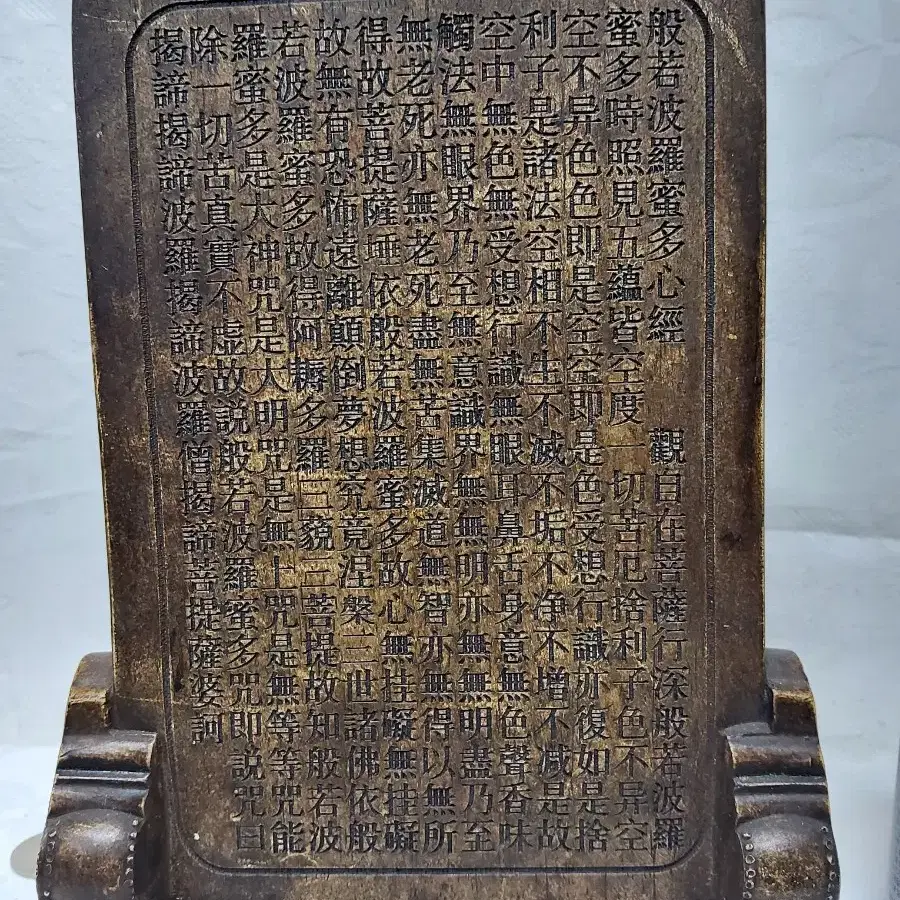 般若波羅蜜多心經 觀自在菩薩行深般若波羅
蜜多時照見五蘊皆空度一切苦厄捨利子色不异空
空不异色色即是空空即是色受想行識亦復如是捨
利子是諸法空相不生不滅不垢不净不增不减是故
空中無色無受想行識無眼耳鼻舌身意無色聲香味
觸法無眼界乃至無意識界無無明亦無無明盡乃至
無老死亦無老死盡無苦集滅道無智亦無得以無所
得故菩提薩埵依般若波羅蜜多故心無挂礙無挂礙
故無有恐怖遠離顛倒夢想究竟涅槃三世諸佛依般
若波羅蜜多故得阿耨多羅三藐三菩提故知般若波
羅蜜多是大神咒是大明咒是無上咒是無等等咒能
除一切苦真實不虛故説般若波羅蜜多咒即説咒曰
揭諦揭諦波羅揭諦波羅僧揭諦菩提薩婆訶